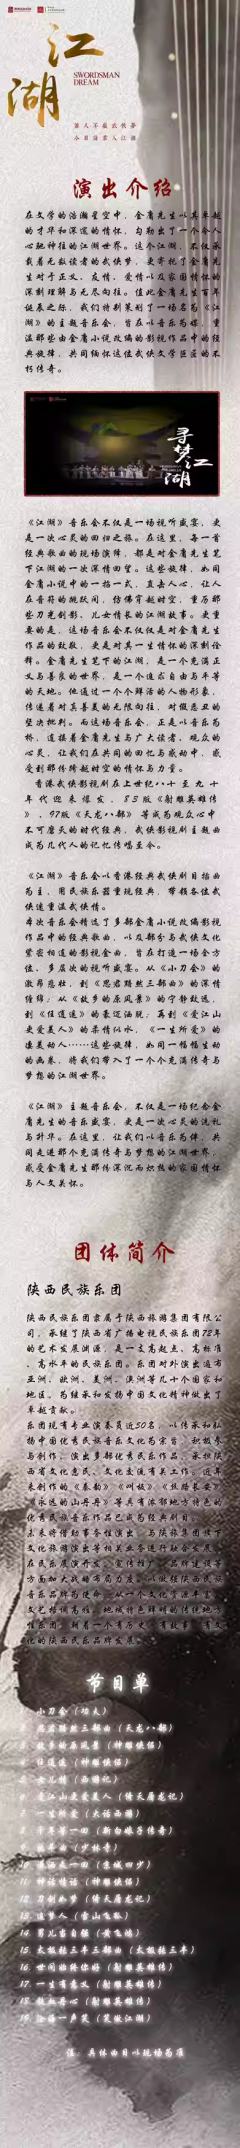 江
湖
SWORDSMAN
DREAM
演出介绍
在文学的浩瀚星空中，金庸先生以其卓越
的才华和深邃的情怀，勾勒出了一个令人
心驰神往的江湖世界。这个江湖，不仅承
载着无数读者的武侠梦，更寄托了金庸先
生对于正义、友情、爱情以及家国情怀的
深刻理解与无尽向往。值此金庸先生百年
诞辰之际，我们特别策划了一场名为《江
湖》的主题音乐会，旨在以音乐为媒，重
温那些由金庸小说改编的影视作品中的经
典旋律，共同缅怀这位武侠文学巨匠的不
朽传奇。
寻梦江湖
《江湖》音乐会不仅是一场视听盛宴，更
是一次心灵的回归之旅。在这里，每一首
经典歌曲的现场演绎，都是对金庸先生笔
下江湖的一次深情回望。这些旋律，如同
金庸小说中的一招一式，直击人心，让人
在音符的跳跃间，仿佛穿越时空，重历那
些刀光剑影、儿女情长的江湖故事。更重
要的是，这场音乐会不仅仅是对金庸先生
作品的致敬，更是对其一生情怀的深刻诠
释。金庸先生笔下的江湖，是一个充满正
义与善良的世界，是一个追求自由与平等
的天地。他通过一个个鲜活的人物形象，
传递着对真善美的无限向往，对假恶丑的
坚决批判。而这场音乐会，正是以音乐为
桥，连接着金庸先生与广大读者、观众的
心灵，让我们在共同的回忆与感动中，感
受到那份跨越时空的情怀与力量。
香港武侠影视剧在上世纪八十至九十
年代迎来爆发，83版《射雕英雄传
》、97版《天龙八部》等成为观众心中
不可磨灭的时代经典，武侠影视剧主题曲
成为几代人的记忆传唱至今。
《江湖》音乐会以香港经典武侠剧目插曲
为主，用民族乐器重现经典，带领各位武
侠迷重温武侠情。
本次音乐会精选了多部金庸小说改编影视
作品中的经典歌曲，以及部分与武侠文化
紧密相连的影视金曲，旨在打造一场全方
位、多层次的视听盛宴。从《小刀会》的
激昂悲壮，到《思君黯然三部曲》的深情
缠绵；从《故乡的原风景》的宁静致远，
到《任逍遥》的豪迈洒脱；再到《爱江山
更爱美人》的柔情似水，《一生所爱》的
凄美动人……这些旋律，如同一幅幅生动
的画卷，将我们带入了一个个充满传奇与
梦想的江湖世界。
《江湖》主题音乐会，不仅是一场纪念金
庸先生的音乐盛宴，更是一次心灵的洗礼
与升华。在这里，让我们以音乐为伴，共
同走进那个充满传奇与梦想的江湖世界，
感受金庸先生那份深沉而炽热的家国情怀
与人文关怀。
团体简介
陕西民族乐团
陕西民族乐团隶属于陕西旅游集团有限公
司，承继了陕西省广播电视民族乐团72年
的艺术发展渊源，是一支高起点、高标准
、高水平的民族乐团。乐团对外演出遍布
亚洲、欧洲、美洲、澳洲等几十个国家和
地区，为继承和发扬中国文化精神做出了
卓越贡献。
乐团现有专业演奏员近50名，以传承和弘
扬中国优秀民族音乐文化为宗旨，积极参
与创作、演出多部优秀民乐作品，承担陕西
省文化惠民、文化交流有关工作。近年
来创作的《秦韵》《叫板》《丝路长安》
《永远的山丹丹》等具有浓郁地方特色的
优秀民族音乐作品已成为经典剧目。
节目单
小刀会（功夫）
思君黯然三部曲（天龙八部）
故乡的原风景（神雕侠侣）
任逍遥（神雕侠侣）
女儿情（西游记）
爱江山更爱美人（倚天屠龙记）
一生所爱（大话西游）
千年等一回（新白娘子传奇）
牧羊曲（少林寺）
潇洒走一回（京城四少）
神话情话（神雕侠侣）
12.刀剑如梦（倚天屠龙记）
13.追梦人（雪山飞狐）
14.男儿当自强（黄飞鸿）
15.太极张三丰三部曲（太极张三丰）
16.世间始终你好（射雕英雄传）
17.一生有意义（射雕英雄传）
18.铁血丹心（射雕英雄传）
19.沧海一声笑（笑傲江湖）
注：具体曲目以现场为准